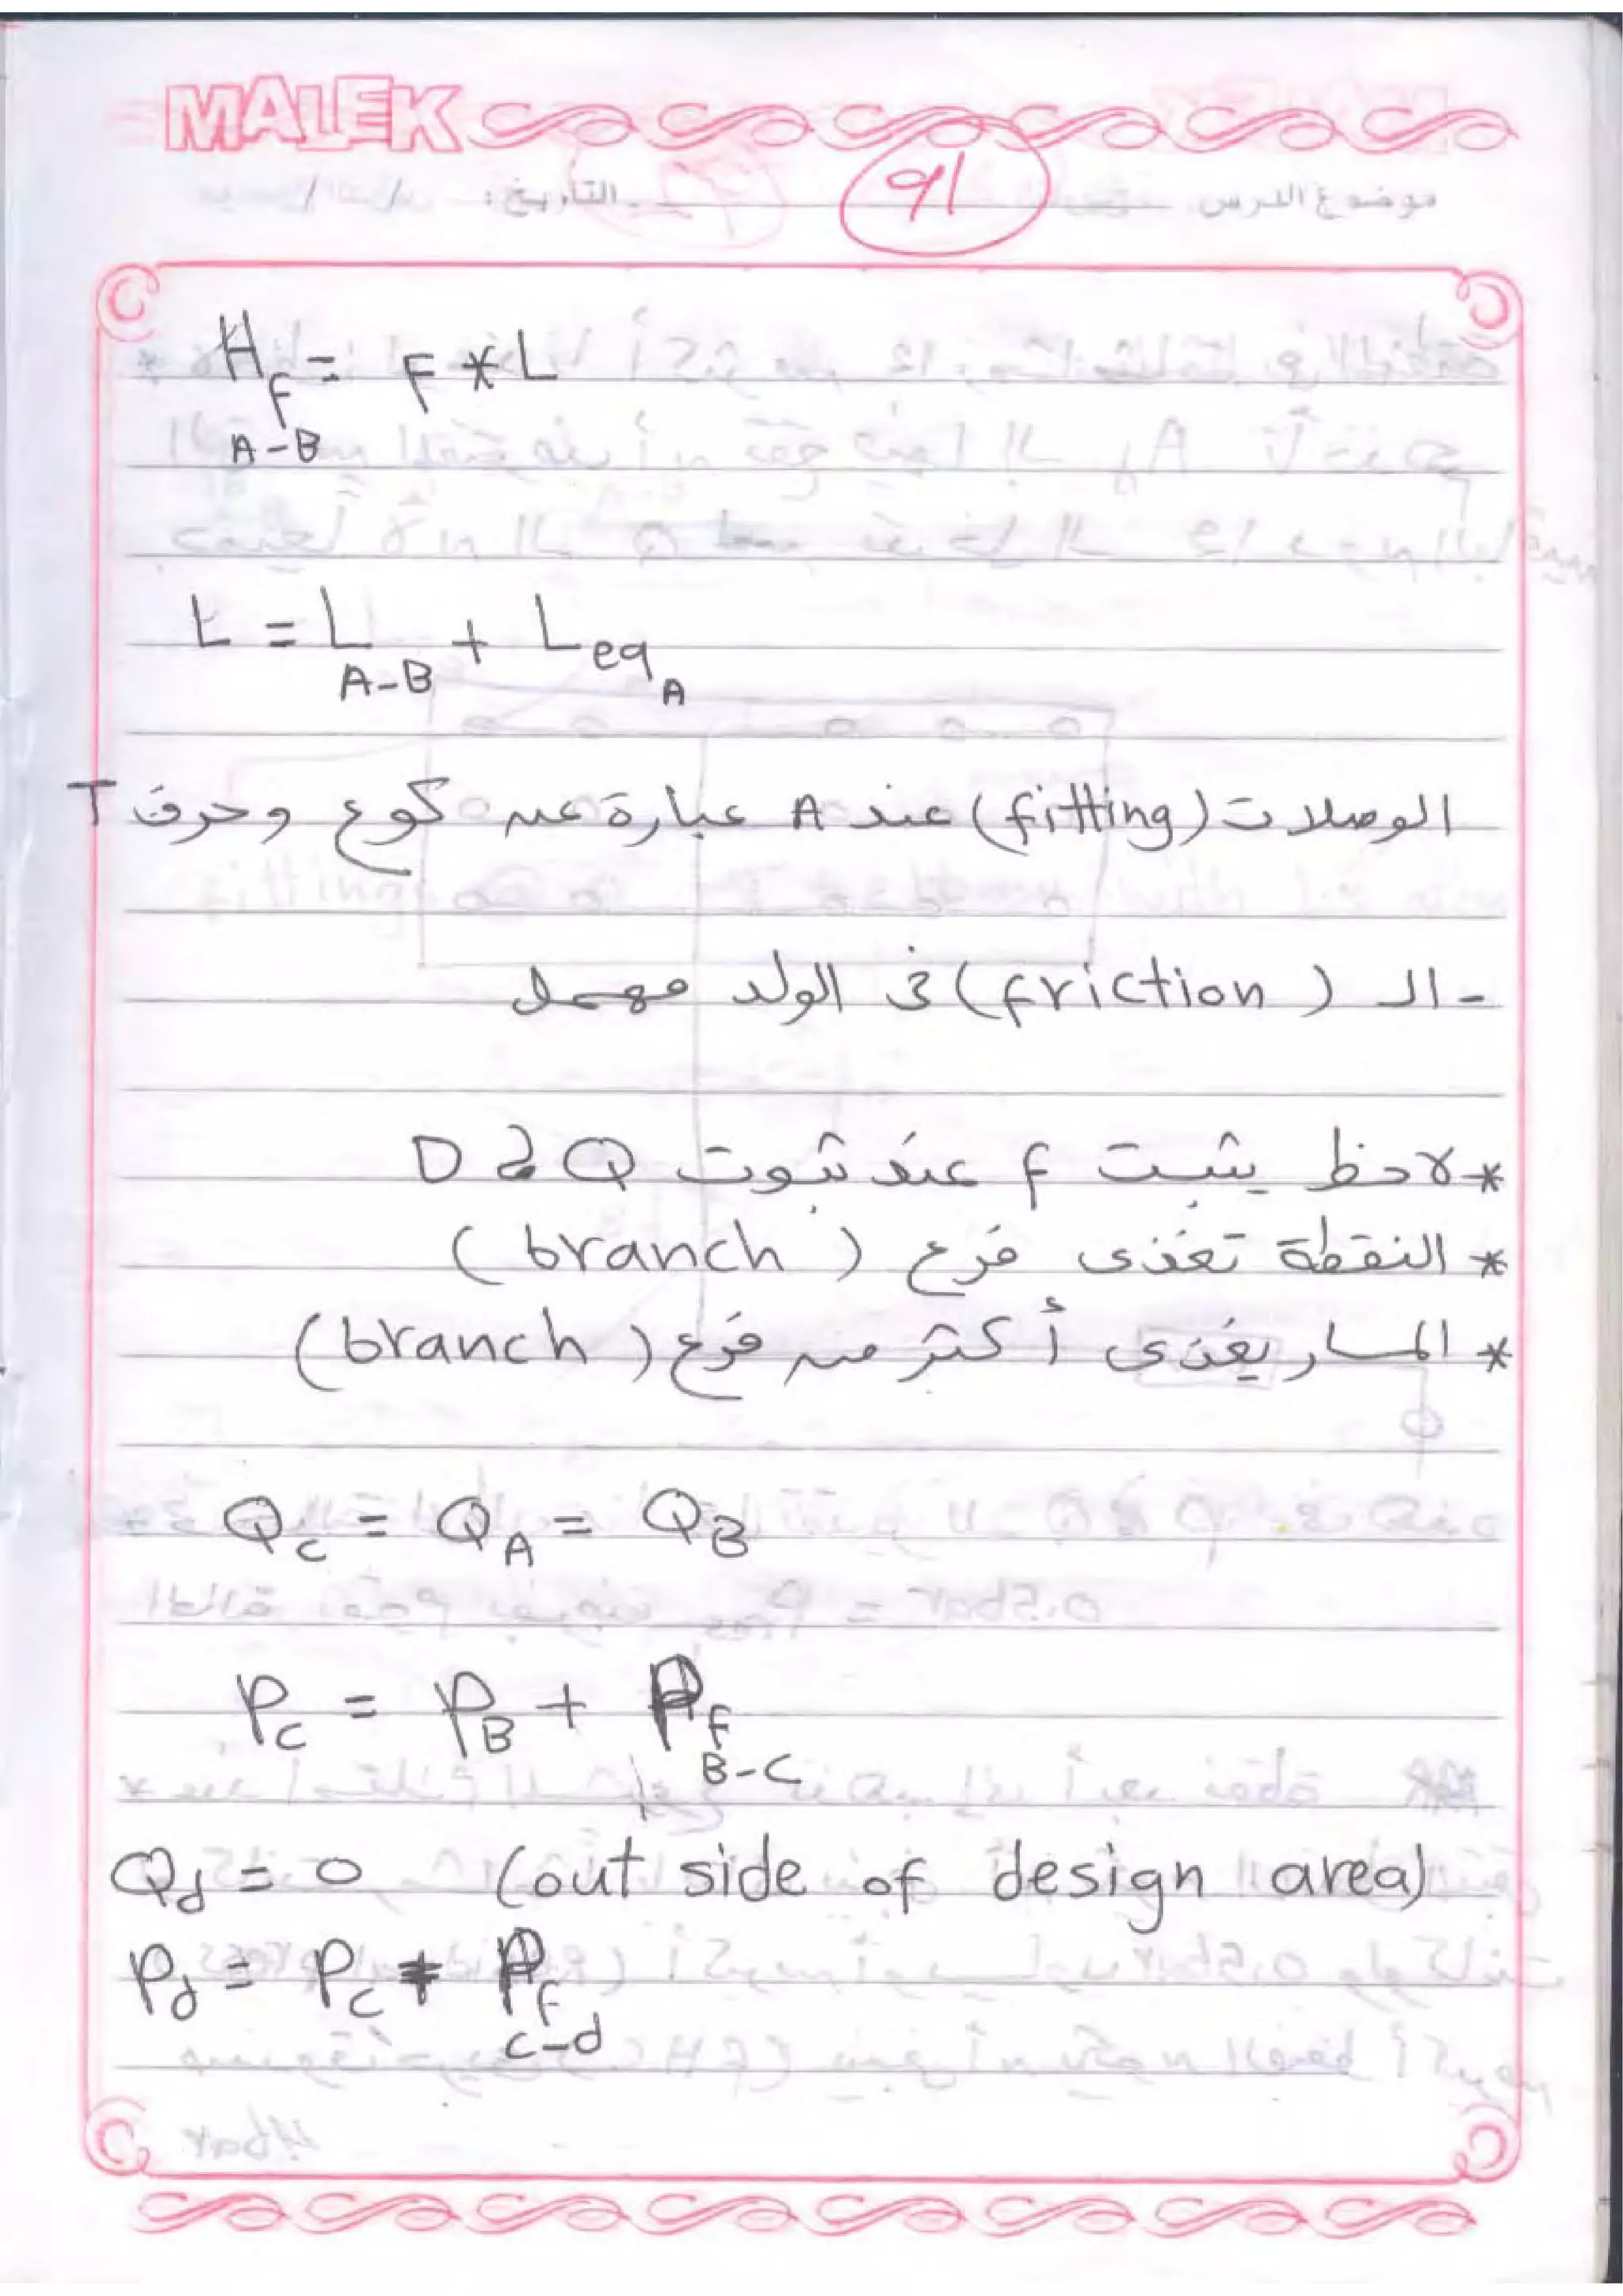 MALEK
موضوع الدرس: التاريخ: / /
91
H_f A-B = F * L
L = L_A-B + L_eq_A
الوصلات (fitting) عند A عبارة عن كوع وحرف T
- الـ (friction) فى الولد مهمل
* لاحظ يثبت f عند ثبوت Q و D
* النقطة تغذى فرع (branch)
* المسار يغذى أكثر من فرع (branch)
Q_C = Q_A = Q_B
P_C = P_B + P_f B-C
Q_d = 0 (out side of design area)
P_d = P_C + P_f C-d